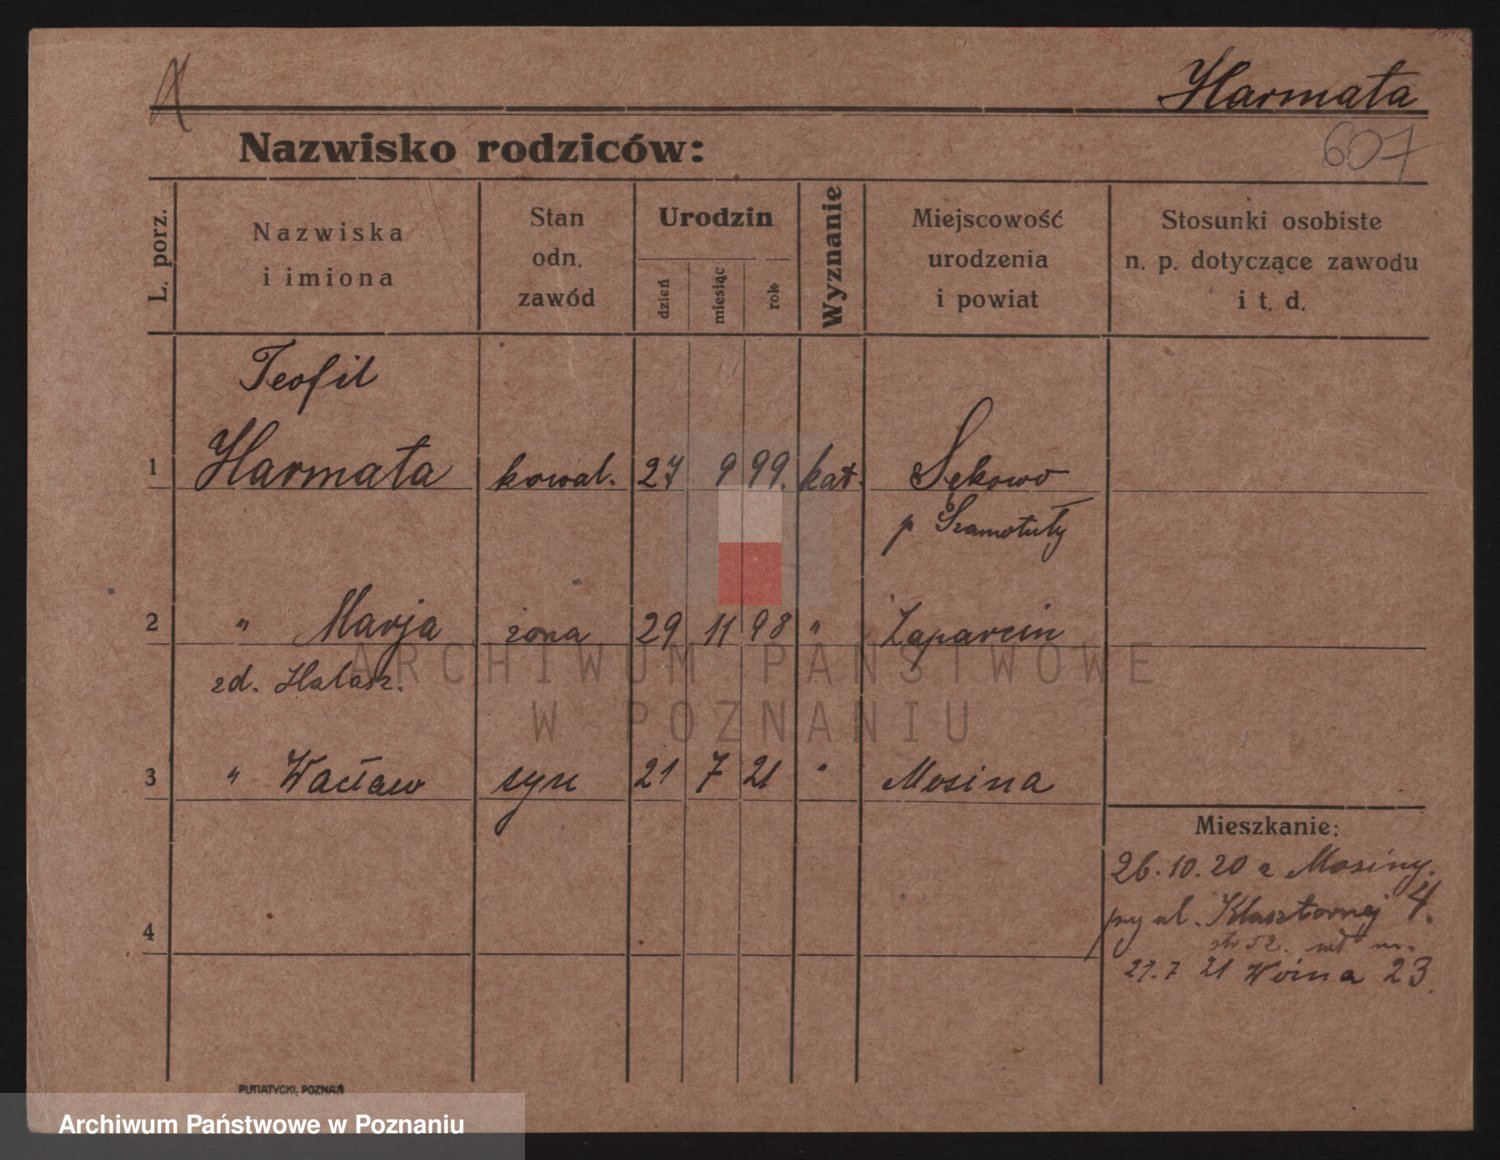 Harmata
607
Nazwisko rodziców:
L. porz.
Nazwiska
i imiona
Stan
odn.
zawód
Urodzin
dzień
miesiąc
rok
Wyznanie
Miejscowość
urodzenia
i powiat
Stosunki osobiste
n. p. dotyczące zawodu
i t. d.
Teofil
1 Harmata kowal. 27 9 99. kat. Sękowo
p Szamotuły
2 " Marja żona 29 11 98 " Zaparcin
zd. Hałasz.
3 " Wacław syn 21 7 21 " Mosina
Mieszkanie:
26.10.20 z Mosiny.
przy ul. Klasztornej 4.
4
21 23.
PUTIATYCKI, POZNAŃ
ARCHIWUM PAŃSTWOWE
W POZNANIU
Archiwum Państwowe w Poznaniu